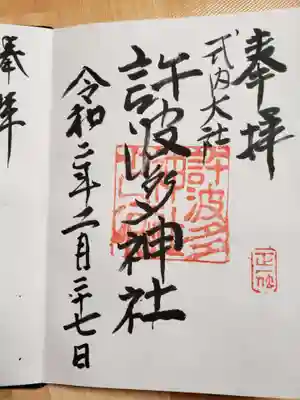 奉拝
式内大社
許波多神社
令和二年二月二十七日
許波多
神社
奉拝